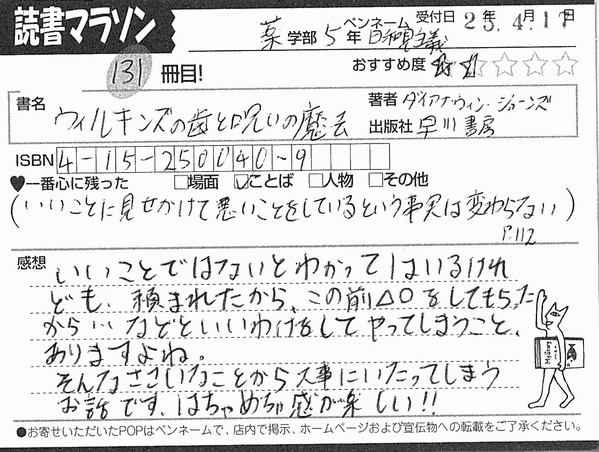 読書マラソン
薬学部 5年 ペンネーム 日和見主義 受付日 25年 4月 17日
131冊目! おすすめ度 ★★☆☆☆
書名 ウィルキンズの歯と呪いの魔法
著者 ダイアナ・ウィン・ジョーンズ
出版社 早川書房
ISBN 4-15-250040-9
♥一番心に残った □場面 ☑ことば □人物 □その他
(いいことに見せかけて悪いことをしているという事実は変わらない)
P.112
感想
いいことではないとわかってはいるけれ
ども、頼まれたから、この前△○をしてもらった
から…などといいわけをしてやってしまうこと、
ありますよね。
そんなささいなことから大事にいたってしまう
お話です。はちゃめちゃ感が楽しい!!
●お寄せいただいたPOPはペンネームで、店内で掲示、ホームページおよび宣伝物への転載をご了承ください。